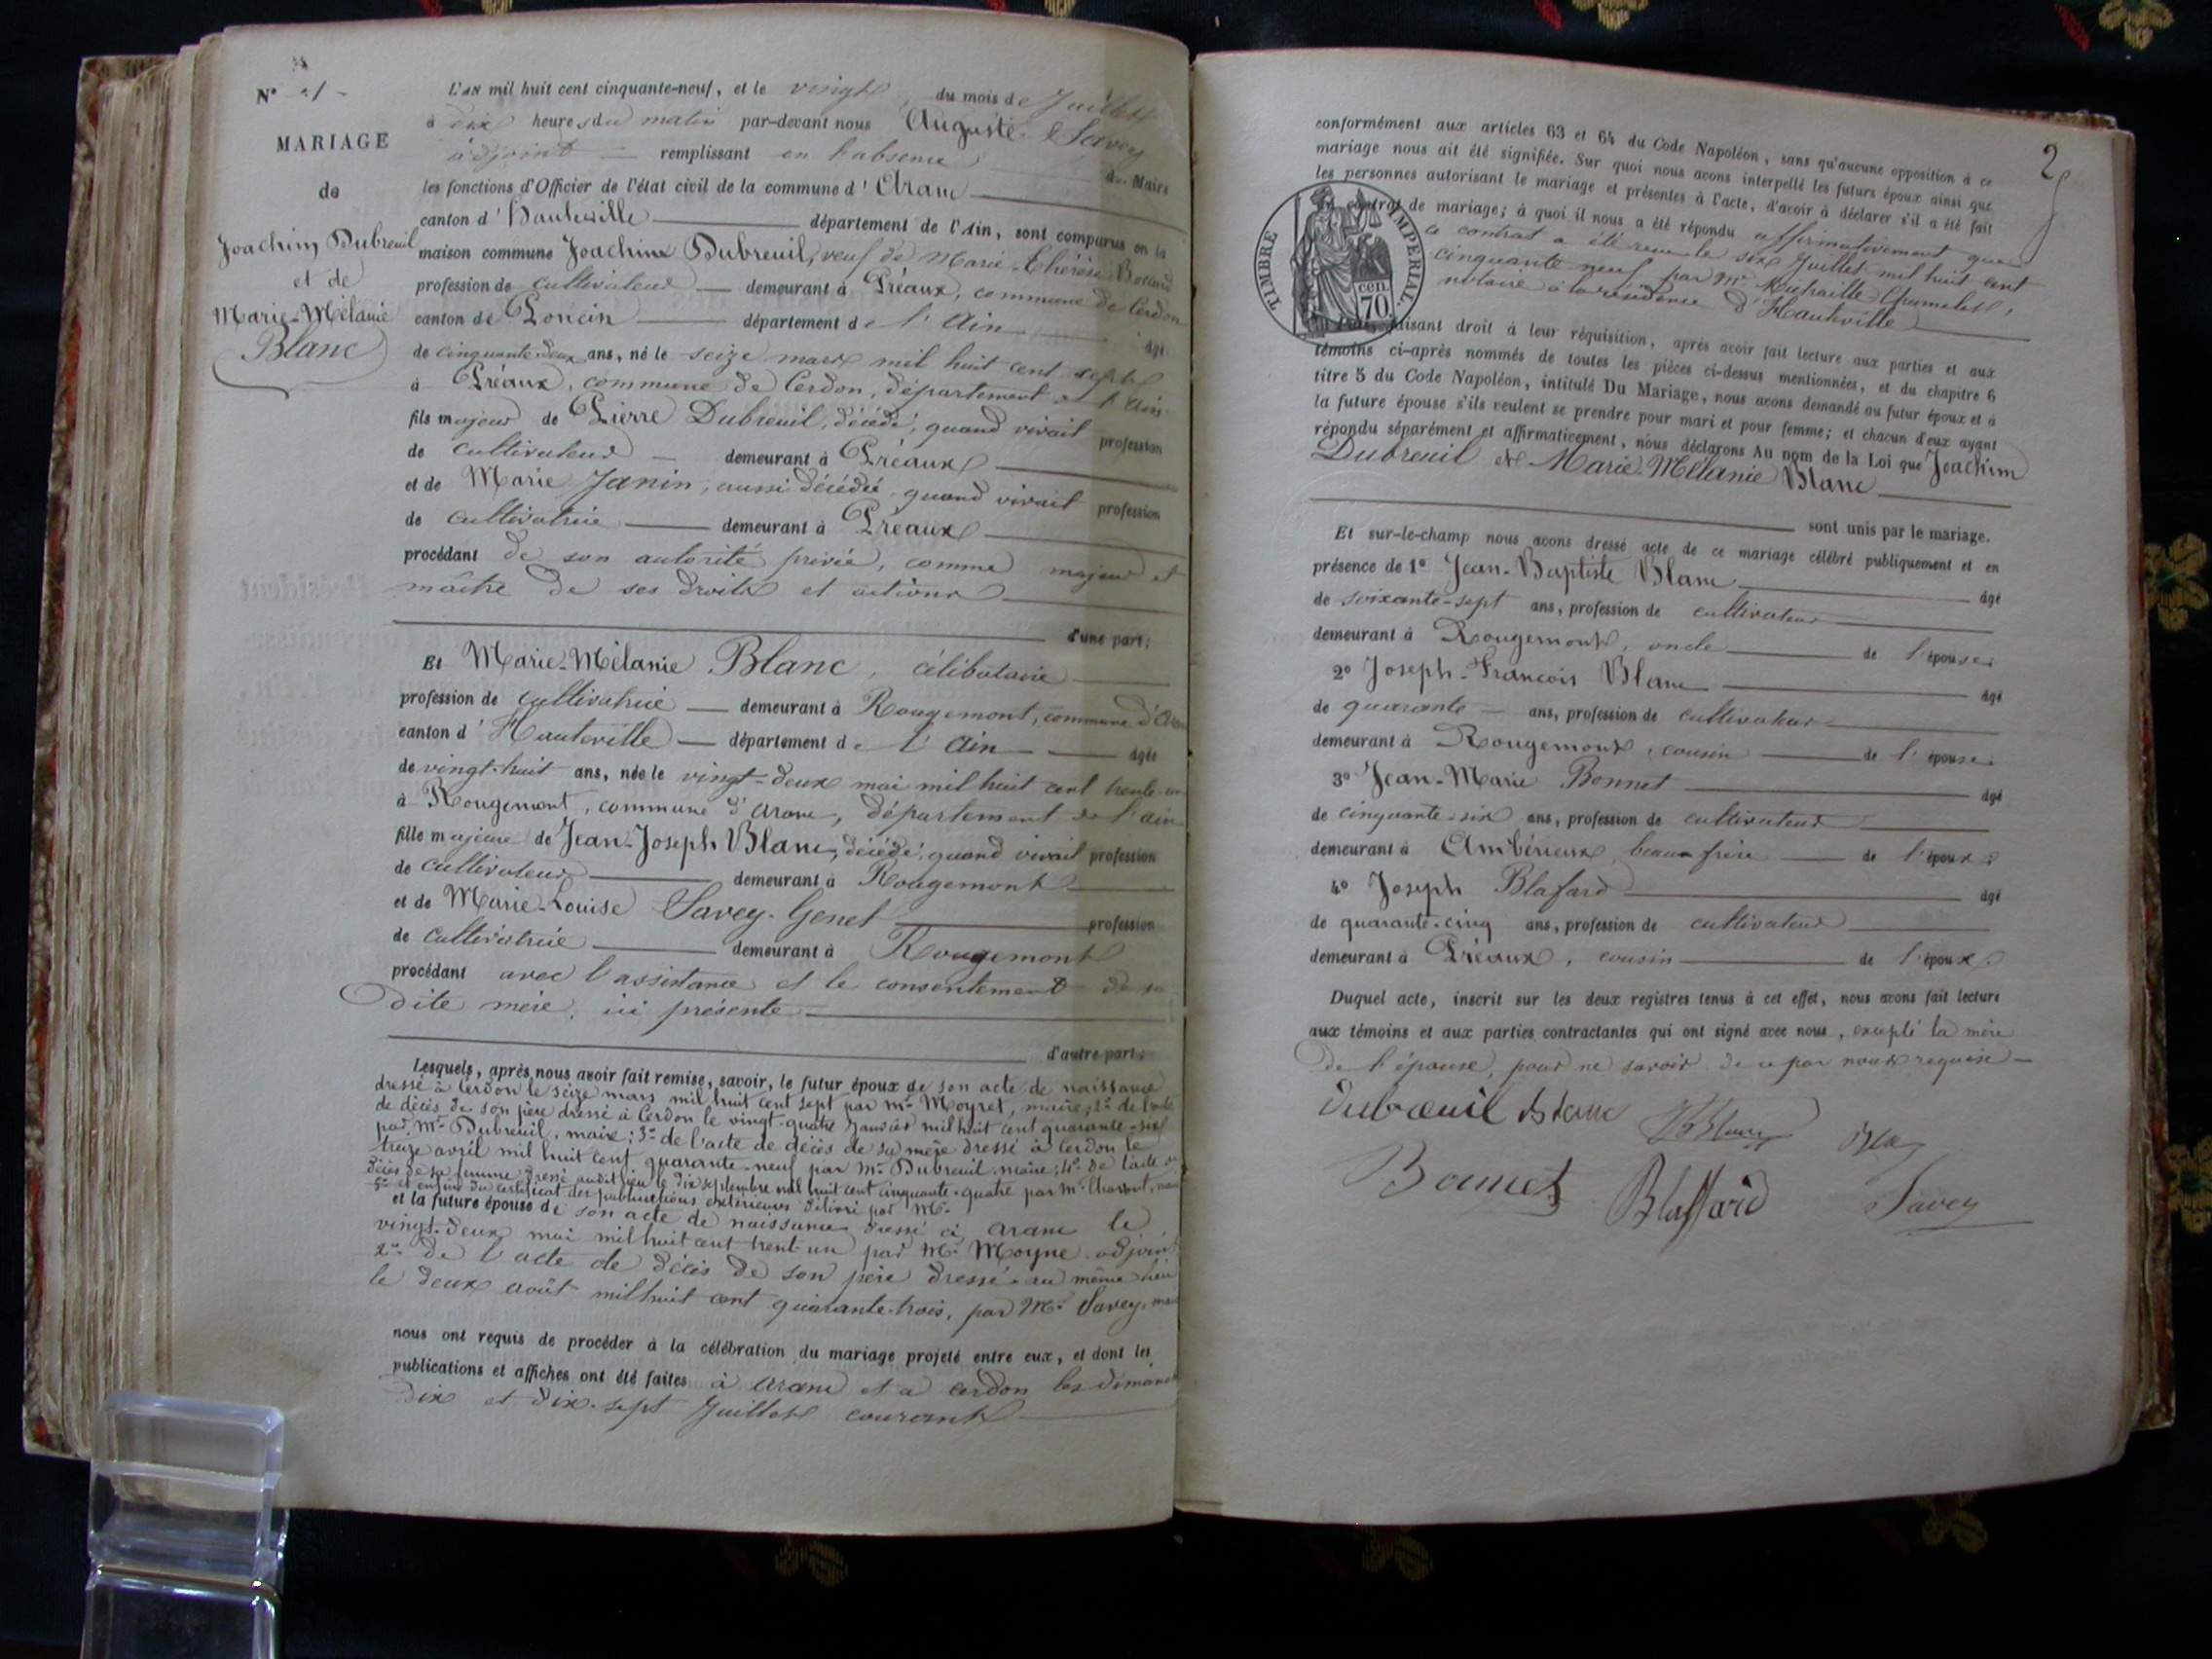 N° 1
MARIAGE
de
Joachim Dubreuil
et de
Marie-Mélanie
Blanc
L'AN mil huit cent cinquante-neuf, et le vingt du mois de Juillet
à dix heures du matin par-devant nous Auguste Savey
adjoint remplissant en l'absence du Maire
les fonctions d'Officier de l'état civil de la commune d'Aranc
canton d'Hauteville département de l'Ain, sont comparus en la
maison commune Joachim Dubreuil, veuf de Marie-Thérèse
profession de cultivateur demeurant à Préaux, commune de Cerdon
canton de Poncin département de l'Ain
âgé
de cinquante deux ans, né le seize mars mil huit cent sept
à Préaux, commune de Cerdon, département de l'Ain
fils majeur de Pierre Dubreuil, décédé, quand vivait profession
de cultivateur demeurant à Préaux
et de Marie Janin, aussi décédée quand vivait profession
de cultivatrice demeurant à Préaux
procédant de son autorité privée, comme majeur et
maître de ses droits et actions
d'une part;
Et Marie-Mélanie Blanc, célibataire
profession de cultivatrice demeurant à Rougemont, commune d'Aranc
canton d'Hauteville département de l'Ain âgée
de vingt-huit ans, née le vingt-deux mai mil huit cent trente-un
à Rougemont, commune d'Aranc, département de l'ain
fille majeure de Jean-Joseph Blanc, décédé, quand vivait profession
de cultivateur demeurant à Rougemont
et de Marie-Louise Savey-Genet profession
de cultivatrice demeurant à Rougemont
procédant avec l'assistance et le consentement de sa
dite mère, ici présente
d'autre part;
Lesquels, après nous avoir fait remise, savoir, le futur époux de son acte de naissance
dressé à Cerdon le seize mars mil huit cent sept par Mr Moyret, maire; 2° de l'acte
de décès de son père dressé à Cerdon le vingt-quatre Janvier mil huit cent quarante-six
par Mr Dubreuil, maire; 3° de l'acte de décès de sa mère dressé à Cerdon le
treize avril mil huit cent quarante-neuf par Mr Dubreuil maire; 4° de l'acte de
décès de sa femme dressé audit lieu le dix septembre mil huit cent cinquante-quatre par Mr
5° et enfin du certificat des publications extérieures délivré par Mr
et la future épouse de son acte de naissance dressé à Aranc le
vingt-deux mai mil huit cent trente un par Mr Moyne adjoint
2° de l'acte de décès de son père dressé au même lieu
le deux août mil huit cent quarante-trois, par Mr Savey, maire
nous ont requis de procéder à la célébration du mariage projeté entre eux, et dont les
publications et affiches ont été faites à Aranc et à Cerdon les dimanches
dix et dix-sept Juillet courant
2
conformément aux articles 63 et 64 du Code Napoléon, sans qu'aucune opposition à ce
mariage nous ait été signifiée. Sur quoi nous avons interpellé les futurs époux ainsi que
les personnes autorisant le mariage et présentes à l'acte, d'avoir à déclarer s'il a été fait
contrat de mariage; à quoi il nous a été répondu affirmativement que
ce contrat a été reçu le six Juillet mil huit cent
cinquante neuf par Mr
notaire à la résidence d'Hauteville
TIMBRE IMPERIAL.
70 cen.
faisant droit à leur réquisition, après avoir fait lecture aux parties et aux
témoins ci-après nommés de toutes les pièces ci-dessus mentionnées, et du chapitre 6
titre 5 du Code Napoléon, intitulé Du Mariage, nous avons demandé au futur époux et à
la future épouse s'ils veulent se prendre pour mari et pour femme; et chacun d'eux ayant
répondu séparément et affirmativement, nous déclarons Au nom de la Loi que Joachim
Dubreuil et Marie-Mélanie Blanc
sont unis par le mariage.
Et sur-le-champ nous avons dressé acte de ce mariage célébré publiquement et en
présence de 1° Jean-Baptiste Blanc âgé
de soixante-sept ans, profession de cultivateur
demeurant à Rougemont, oncle de l'épouse;
2° Joseph-François Blanc âgé
de quarante ans, profession de cultivateur
demeurant à Rougemont, cousin de l'épouse;
3° Jean-Marie Bonnet âgé
de cinquante-six ans, profession de cultivateur
demeurant à Ambérieux, beau frère de l'époux;
4° Joseph Blafard âgé
de quarante-cinq ans, profession de cultivateur
demeurant à Préaux, cousin de l'époux.
Duquel acte, inscrit sur les deux registres tenus à cet effet, nous avons fait lecture
aux témoins et aux parties contractantes qui ont signé avec nous, excepté la mère
de l'épouse, pour ne savoir de ce par nous requise
dubreuil blanc
Bonnet Blaffard Savey